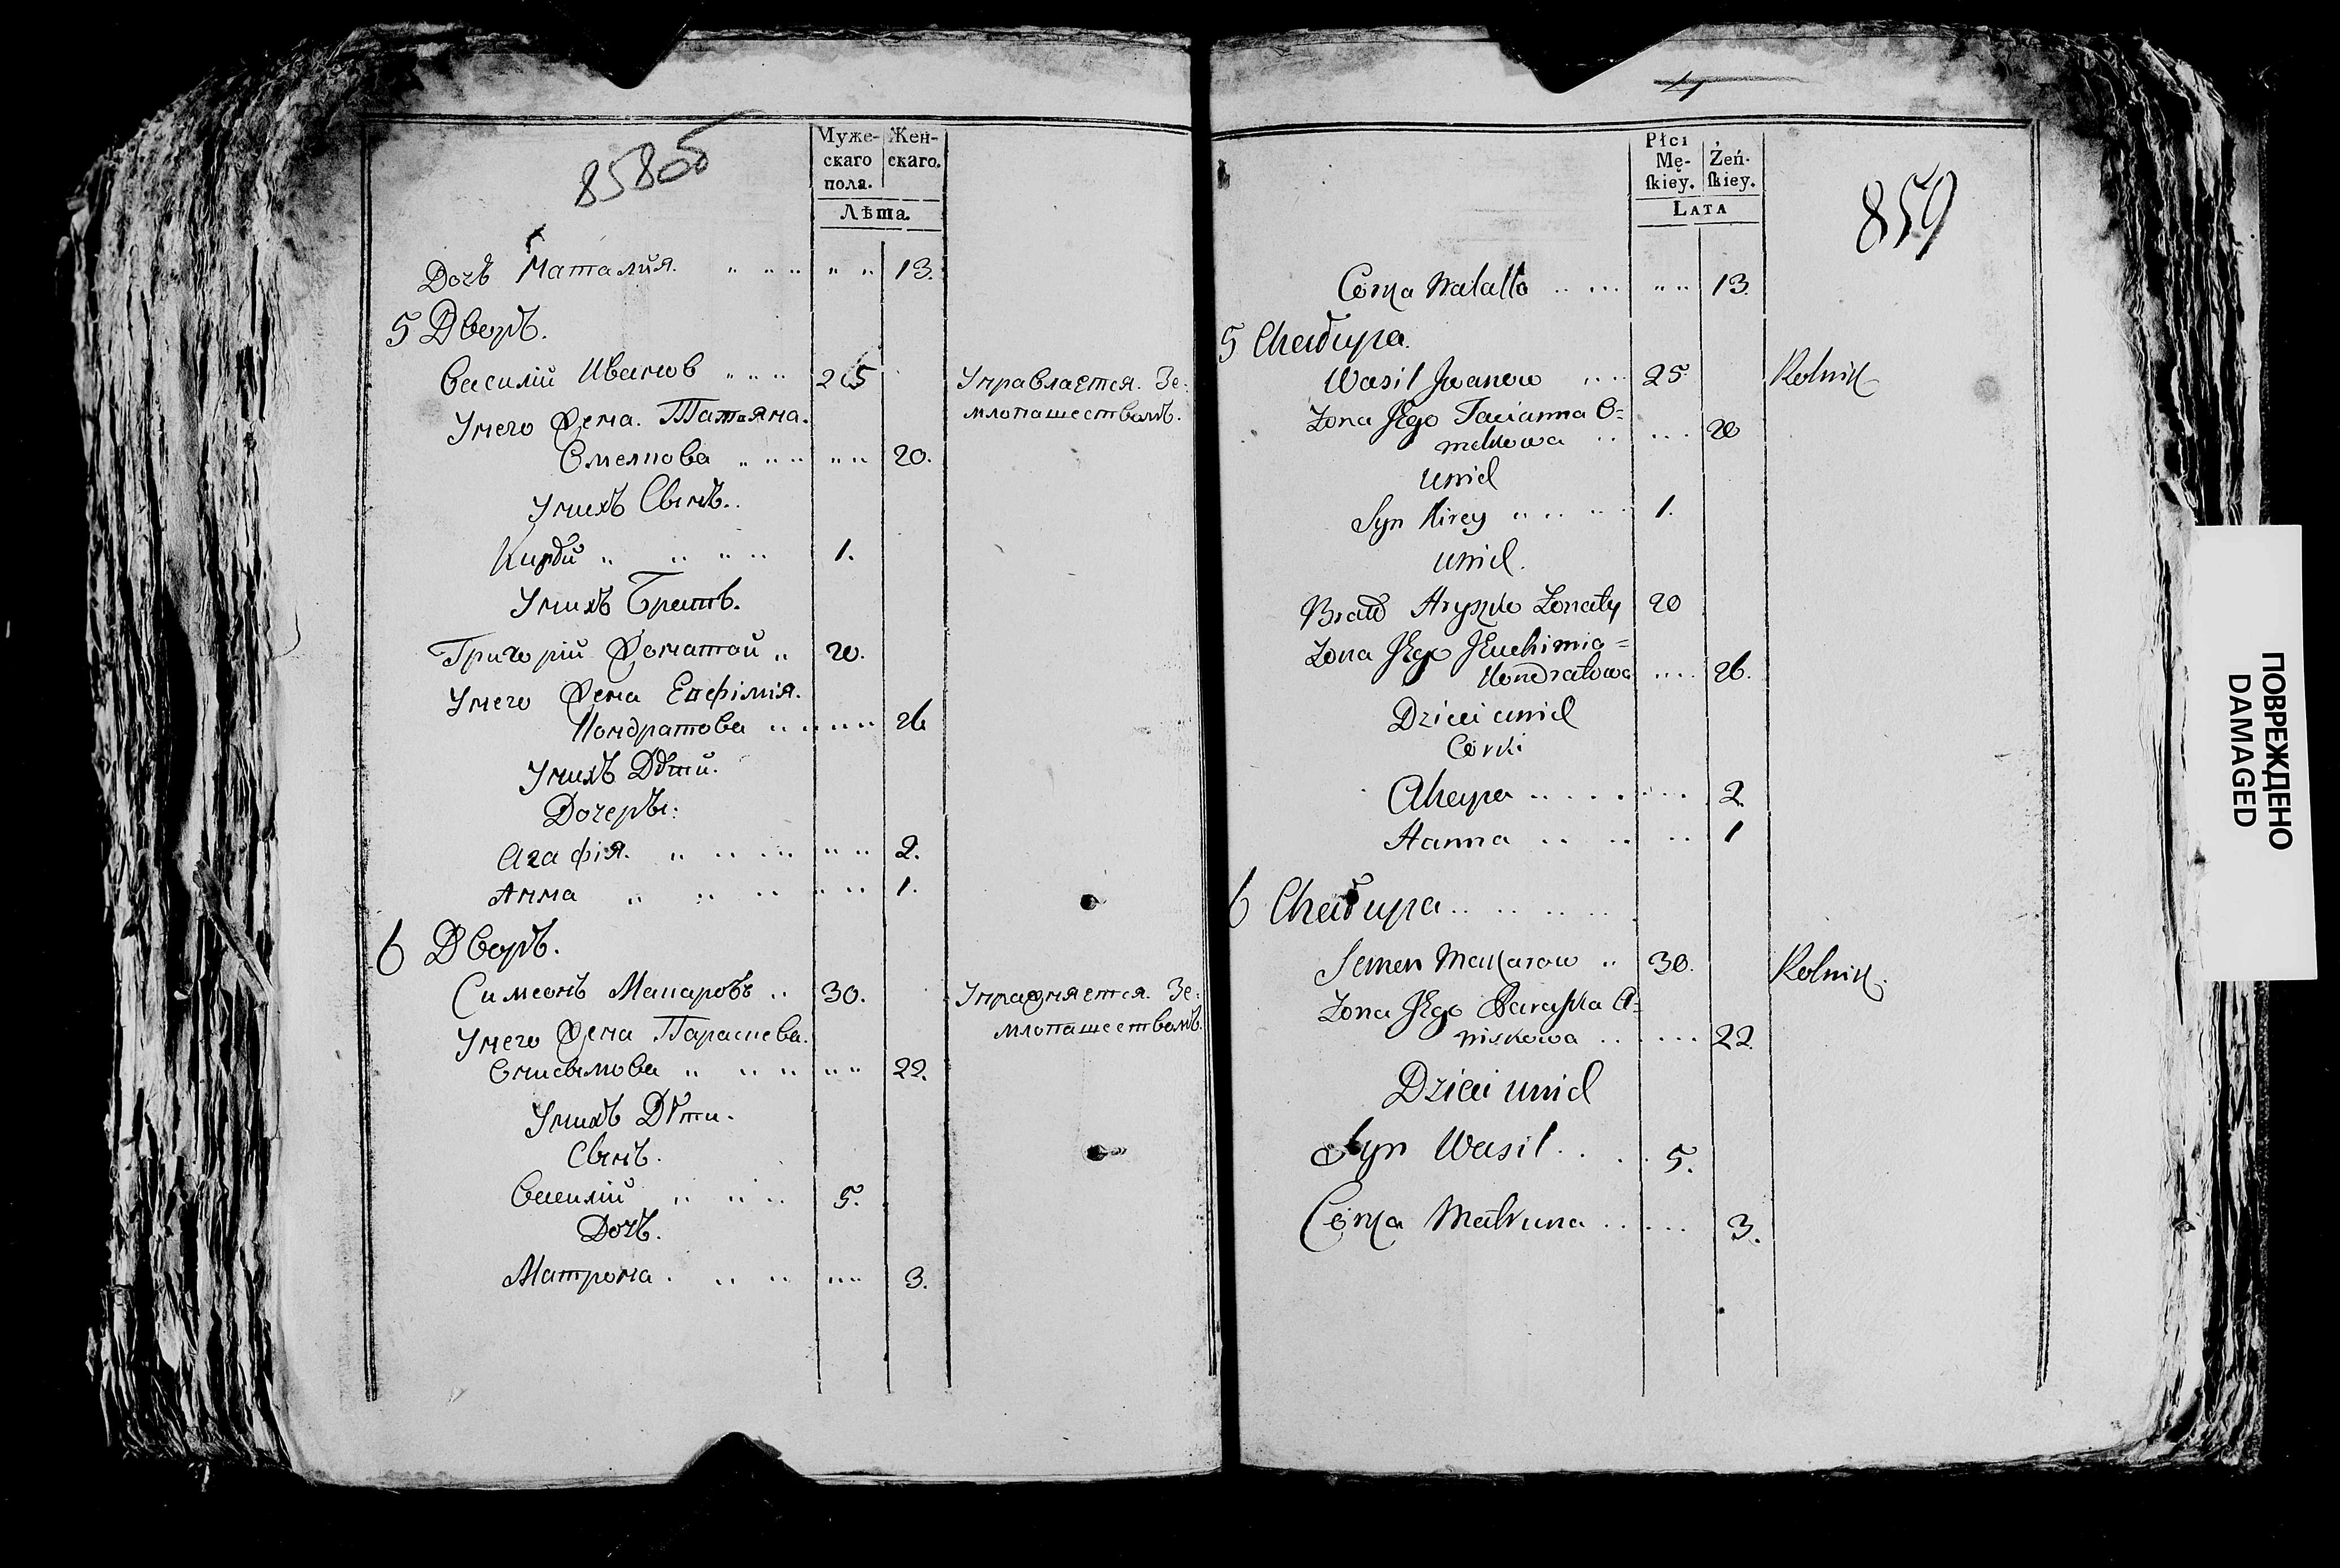 858об
Муже-
скаго
пола.
Жен-
скаго.
Лѣта.
Дочъ Наталия. 13.
5 Дворъ.
Василій Иванов 25
Управлается. Зе:
млопашествомъ.
Унего Жена. Татьяна.
Омелкова 20.
Унихъ Сынъ.
Кирѣй 1.
Унихъ Братъ.
Григорій Женатой 20.
Унего Жена Евфімія.
Кондратова 26
Унихъ Дѣти.
Дочеръи:
Агафія. 2.
Анна 1.
6 Дворъ.
Симеонъ Макаровъ 30.
Упражняется. Зе:
млопашествомъ.
Унего Жена Параскева.
Онисымова 22.
Унихъ Дѣти.
Сынъ.
Василій 5.
Дочъ.
Матрона 3.
4
859
Płci
Mę-
ſkiey.
Żeń-
ſkiey.
Lata
Corka Natalla 13.
5 Chałupa.
Wasil Jwanow 25. Rolnik
Zona Jego Tacianna O=
melkowa 20
unich
Syn Kirey 1.
unich.
Brat Hryszko Zonaty 20
Zona Jego Jeuchimia=
Kondratowa 26.
Dzieci unich
Corki
Ahapa 2.
Hanna 1
6 Chałupa
Semen Makarow 30. Rolnik.
Zona Jego Paraſka A=
niskowa 22.
Dzieci unich
Syn Wasil 5.
Corka Matruna 3.
ПОВРЕЖДЕНО
DAMAGED